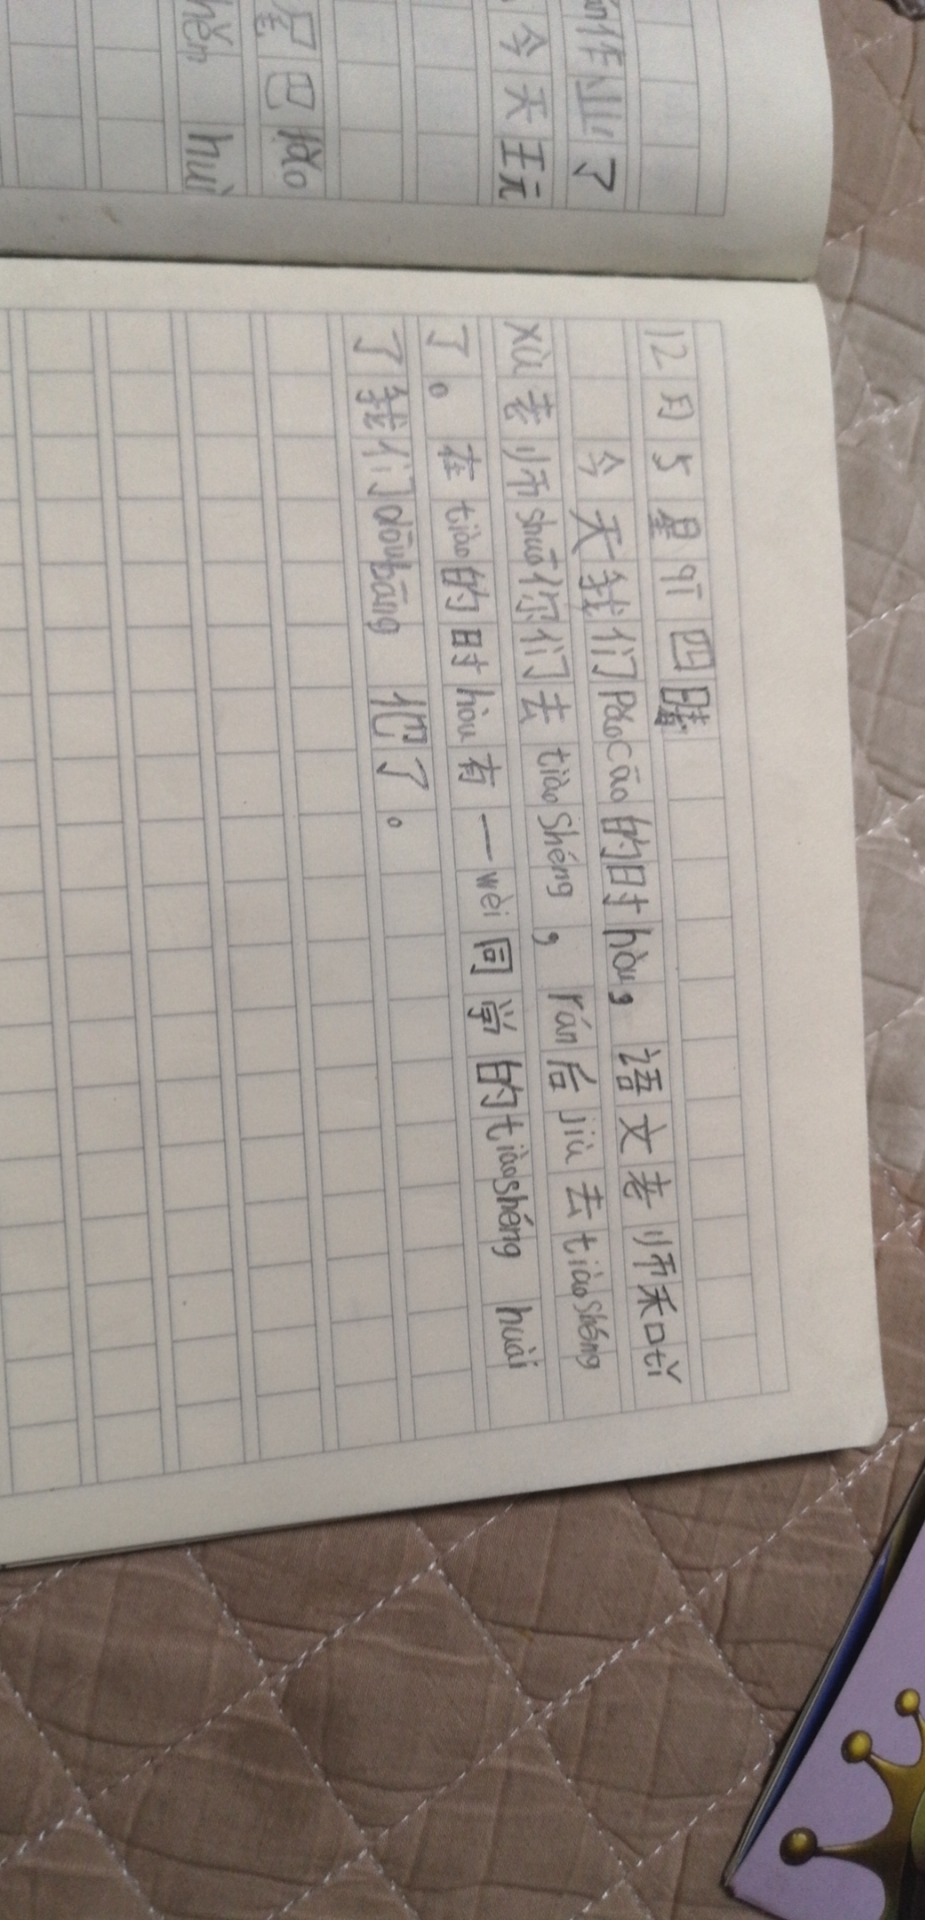 作业了
今天王元
尾巴
hěn huì
12月5星期四晴
今天我们pǎocāo的时hòu,语文老师和tǐ
xù老师shuō你们去tiàoshéng,rán后jiù去tiàoshéng
了。在tiào的时hòu有一wèi同学的tiàoshéng huài
了我们dōubāng 他了。